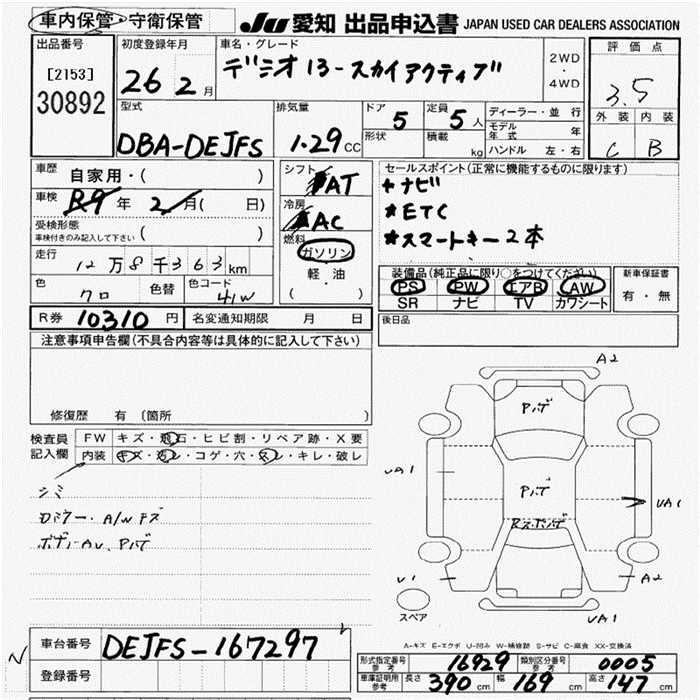 車内保管・守衛保管
JU 愛知 出品申込書 JAPAN USED CAR DEALERS ASSOCIATION
出品番号
[2153]
30892
初度登録年月
26 2月
車名・グレード
デミオ 13-スカイアクティブ
2WD
・
4WD
評価点
3.5
外装 内装
C B
型式
DBA-DEJFS
排気量
1.29CC
ドア 5
形状
定員 5人
積載 kg
ディーラー・並行
モデル年式 年
ハンドル 左・右
車歴 自家用・( )
車検 R9年 2月( 日)
受検形態
車検付きのみ記入して下さい ( )
走行
12万8千363km
色 クロ
色替
色コード 41W
シフト AT
冷房 AC
燃料
ガソリン
軽・油
( )
セールスポイント(正常に機能するものに限ります)
ナビ
★ETC
★スマートキー2本
装備品(純正品に限り○をつけてください)
PS PW エアB AW
SR ナビ TV カワシート
新車保証書
有・無
R券 10310円
名変通知期限 月 日
後日品
注意事項申告欄(不具合内容等は具体的に記入して下さい)
修復歴 有 (箇所
検査員記入欄
FW キズ・飛石・ヒビ割・リペア跡・X要
内装 キズ・汚レ・コゲ・穴・スレ・キレ・破レ
シミ
ロドアー・A/Wキズ
ボデーAU、Pハゲ
A2
Pハゲ
UA1
Pハゲ
UA1
Rスポハゲ
U1
A2
スペア
UA1
A-キズ E-エクボ U-凹み W-補修跡 S-サビ C-腐食 XX-交換済
車台番号 DEJFS-167297
登録番号
形式指定番号 参考 16929
類別区分番号 参考 0005
車庫証明用 参考 長さ 390cm 幅 169cm 高さ 147cm